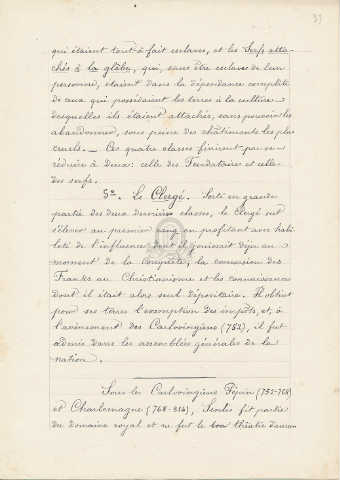 37
qui étaient tout à fait esclaves, et les Serfs atta-
chés à la glèbe, qui, sans être esclaves de leur
personne, étaient dans la dépendance complète
de ceux qui possédaient les terres à la culture
desquelles ils étaient attachés, sans pouvoir les
abandonner, sous peine des châtiments les plus
cruels. — Ces quatre classes finirent par se
réduire à deux : celle des Feudataires et celle
des serfs.
5º. Le Clergé. Sorti en grande
partie des deux dernières classes, le Clergé sut
s'élever au premier rang en profitant avec habi-
leté de l'influence dont il jouissait déjà au
moment de la Conquête, la conversion des
Franks au Christianisme et les connaissances
dont il était alors seul dépositaire. Il obtint
pour ses terres l'exemption des impôts, et, à
l'avènement des Carlovingiens (752), il fut
admis dans les assemblées générales de la
nation.
Sous les Carlovingiens Pépin (752-768)
et Charlemagne (768-814), Senlis fit partie
du domaine royal et ne fut le théâtre d'aucun